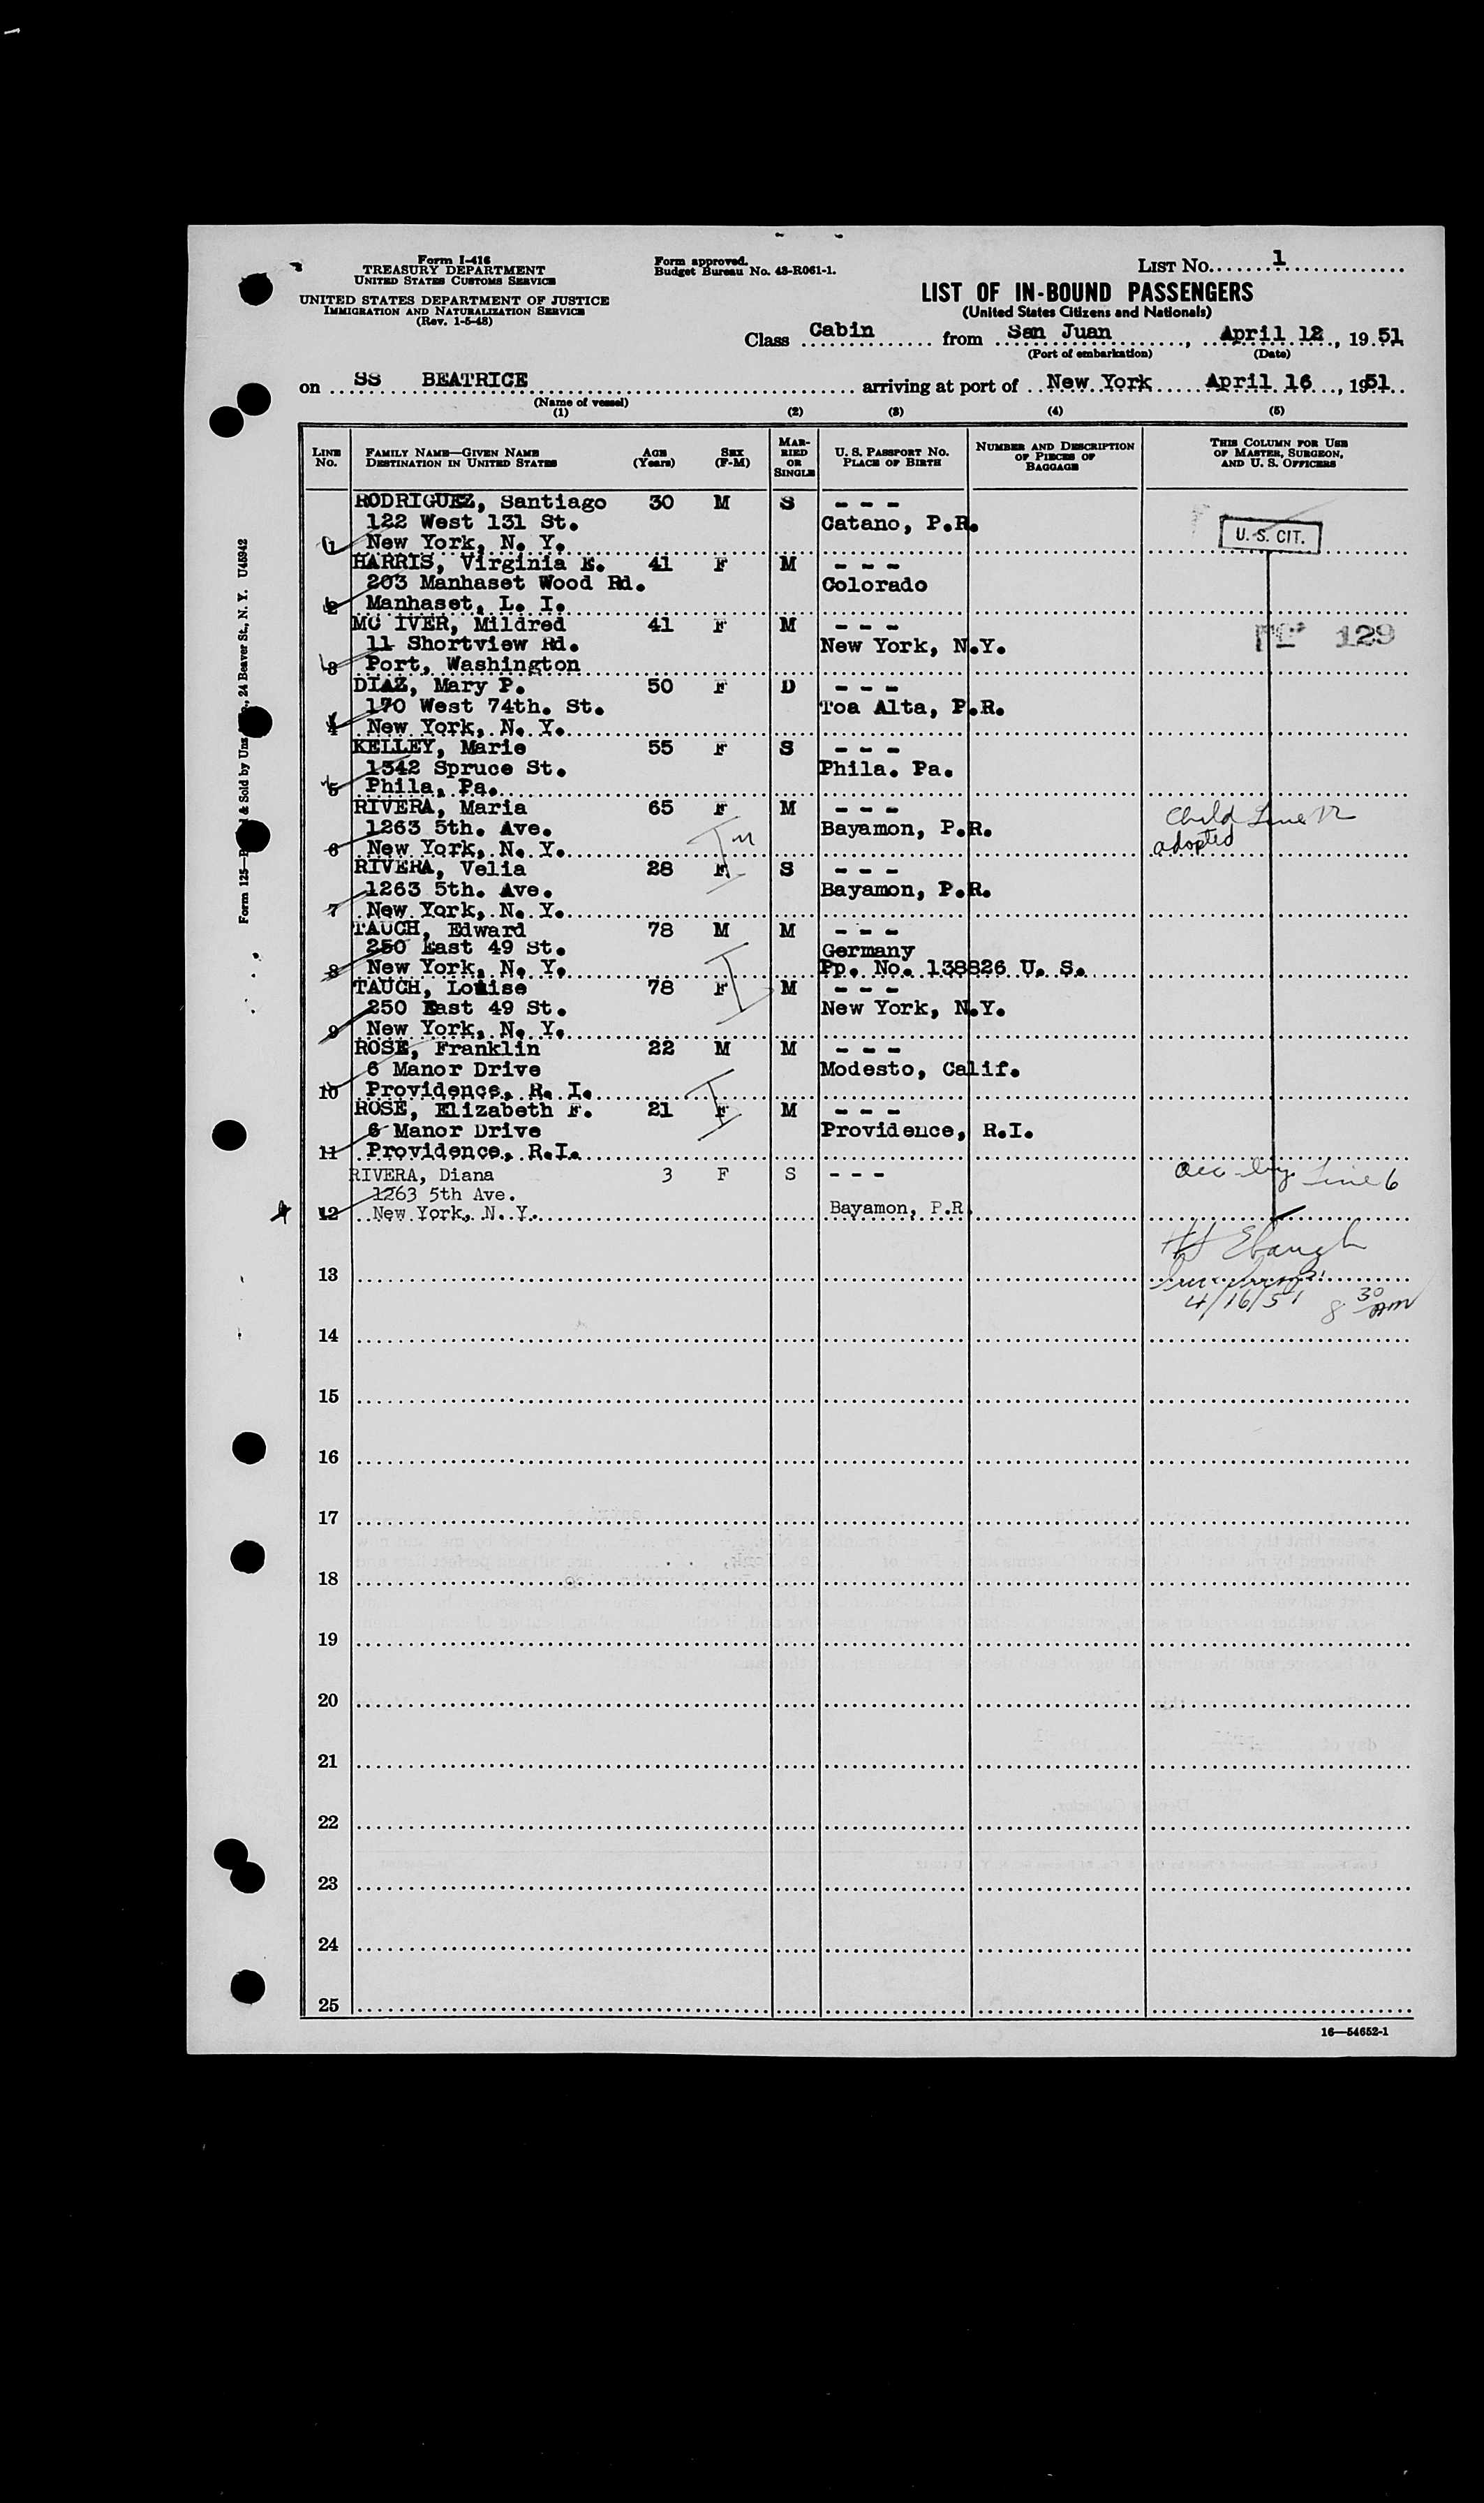 Form I-416
TREASURY DEPARTMENT
UNITED STATES CUSTOMS SERVICE
UNITED STATES DEPARTMENT OF JUSTICE
IMMIGRATION AND NATURALIZATION SERVICE
(Rev. 1-5-48)
Form approved.
Budget Bureau No. 43-R061-1.
LIST No. 1
LIST OF IN-BOUND PASSENGERS
(United States Citizens and Nationals)
Class Cabin from San Juan, April 12, 1951
(Port of embarkation) (Date)
on SS BEATRICE arriving at port of New York April 16, 1951
(Name of vessel)
(1) (2) (3) (4) (5)
LINE No. FAMILY NAME—GIVEN NAME DESTINATION IN UNITED STATES AGE (Years) SEX (F-M) MARRIED OR SINGLE U. S. PASSPORT NO. PLACE OF BIRTH NUMBER AND DESCRIPTION OF PIECES OF BAGGAGE THIS COLUMN FOR USE OF MASTER, SURGEON, AND U. S. OFFICERS
RODRIGUEZ, Santiago 30 M S - - -
122 West 131 St. Catano, P.R. U. S. CIT.
1 New York, N. Y.
HARRIS, Virginia E. 41 F M - - -
203 Manhaset Wood Rd. Colorado
2 Manhaset, L. I.
MC IVER, Mildred 41 F M - - - 129
11 Shortview Rd. New York, N.Y.
3 Port, Washington
DIAZ, Mary P. 50 F D - - -
170 West 74th. St. Toa Alta, P.R.
4 New York, N. Y.
KELLEY, Marie 55 F S - - -
1342 Spruce St. Phila. Pa.
5 Phila, Pa.
RIVERA, Maria 65 F M - - - Child Line 12
1263 5th. Ave. Bayamon, P.R. adopted
6 New York, N. Y.
RIVERA, Velia 28 F S - - -
1263 5th. Ave. Bayamon, P.R.
7 New York, N. Y.
TAUCH, Edward 78 M M - - -
250 East 49 St. Germany
8 New York, N. Y. Pp. No. 138826 U. S.
TAUCH, Louise 78 F M - - -
250 East 49 St. New York, N.Y.
9 New York, N. Y.
ROSE, Franklin 22 M M - - -
6 Manor Drive Modesto, Calif.
10 Providence, R. I.
ROSE, Elizabeth F. 21 F M - - -
6 Manor Drive Providence, R.I.
11 Providence, R.I.
RIVERA, Diana 3 F S - - - acc by Line 6
1263 5th Ave.
12 New York, N. Y. Bayamon, P.R.
13
4/16/51 8 30 AM
14
15
16
17
18
19
20
21
22
23
24
25
16—54652-1
Form 125— & Sold by , 24 Beaver St., N. Y. U45942